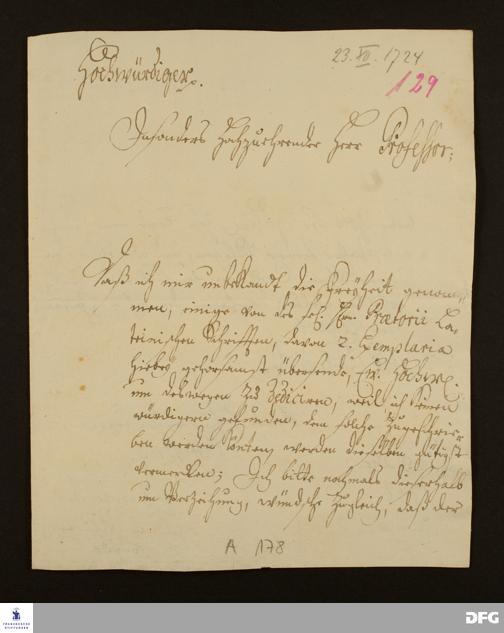 23. XII. 1724
129
Hochwürdiger p.
Insonders Hochzuehrender Herr Professor;
Daß ich mir unbekandt die Freyheit genom-
men, einige von des sel. Hrn. Praetorii La-
teinischen Schrifften, davon 2. Exemplaria
hiebey gehorsamst übersende, Ew. Hochw.
um deswegen zu dediciren, weil ich keinen
würdigern gefunden, dem solche zugeschrie-
ben werden könten, werden dieselben gütigst
vermercken; Ich bitte nochmals dieserhalb
um Verzeihung, wündsche zugleich, daß der
A 178
FRANCKESCHE
STIFTUNGEN
DFG